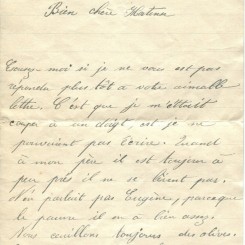 Bien chère Hortense
Excuse moi si je ne vous est pas
répondu plus tôt a votre aimable
lettre. C'est que je m'ettait
couper a un doigt, est je ne
pouvaient pas écrire. Quand
à mon père il est toujour à
peu près il ne se sent pas.
N'en parlait pas Eugène, parceque
le pauvre il en a bien assez.
Nous cueillons toujours des olives.